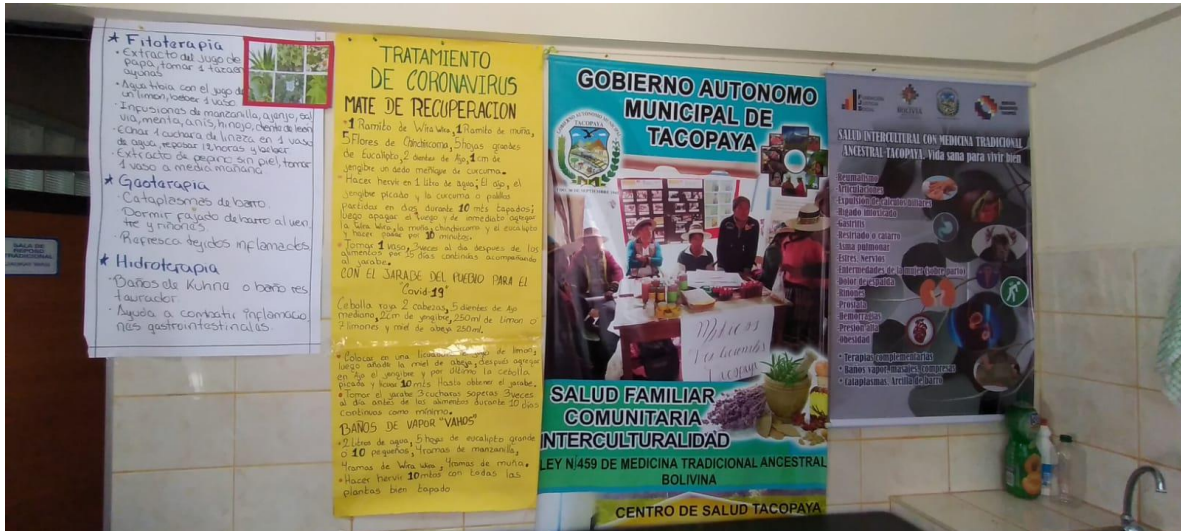 * Fitoterapia
• Extracto del Jugo de
papa, tomar 1 taza en
ayunas
• Agua tibia con el jugo de
un limon, beber 1 vaso
- Infusiones de manzanilla, ajenjo, sal
via, menta, anis, hinojo, diente de leon
- Echar 1 cuchara de linaza en 1 vaso
de agua, reposar 12 horas y beber
- Extracto de pepino sin piel, tomar
1 vaso a media mañana
* Geoterapia
- Cataplasmas de barro.
- Dormir fajado de barro al vien
tre y riñones.
- Refresca tejidos inflamados
* Hidroterapia
- Baños de Kuhna o baño res
taurador.
- Ayuda a combatir inflamacio
nes gastrointestinales.
SALA DE
TRADICIONAL
TRATAMIENTO
DE CORONAVIRUS
MATE DE RECUPERACION
• 1 Ramito de Wira Wira, 1 Ramito de muña,
5 Flores de Chinchircoma, 5 hojas grandes
de Eucalipto, 2 dientes de Ajo, 1 cm de
jengibre un dedo meñique de curcuma.
- Hacer hervir en 1 litro de agua; El ajo, el
jengibre picado y la curcuma o palillo
partidas en dos durante 10 mts tapados;
luego apagar el fuego y de inmediato agregar
la Wira Wira, la muña, chinchircoma y el eucalipto
y hacer por 10 minutos.
• Tomar 1 vaso, 3 veces al dia despues de los
alimentos por 15 dias continuos acompañando
al jarabe.
CON EL JARABE DEL PUEBLO PARA EL
"Covid-19"
Cebolla roja 2 cabezas, 5 dientes de Ajo
mediano, 2cm de jengibre, 250ml de limon o
7 limones y miel de abeja 250ml.
• Colocar en una de limon,
luego añadir la miel de abeja, después agregar
el jengibre y por ultimo la cebolla
picada y licuar 10 mts Hasta obtener el jarabe.
• Tomar el jarabe 3 cucharas soperas 3 veces
al dia antes de los alimentos durante 10 dias
continuos como minimo.
BAÑOS DE VAPOR "VAHOS"
• 2 Litros de agua, 5 hojas de eucalipto grande
o 10 pequeños, 4 ramas de manzanilla,
4 ramas de Wira wira, 4 ramas de muña.
• Hacer hervir 10 mtos con todas las
plantas bien tapado
GOBIERNO AUTONOMO
MUNICIPAL DE
TACOPAYA
TACOPAYA
Medicos
Tradicionales
Tacopaya
SALUD FAMILIAR
COMUNITARIA
INTERCULTURALIDAD
LEY N|459 DE MEDICINA TRADICIONAL ANCESTRAL
BOLIVINA
CENTRO DE SALUD TACOPAYA
BOLIVIA
SALUD INTERCULTURAL CON MEDICINA TRADICIONAL
ANCESTRAL-TACOPAYA. Vida sana para vivir bien
Reumatismo
Articulaciones
Expulsión de cálculos biliares
Hígado intoxicado
Gastritis
Resfriado o catarro
Asma pulmonar
Estrés, Nervios
Enfermedades de la mujer (sobre parto)
Dolor de espalda
Riñones
Prostata
Hemorragias
Presión alta
Obesidad
• Terapias complementarias
• Baños vapor, masajes, compresas
• Cataplasmas, Arcilla de barro